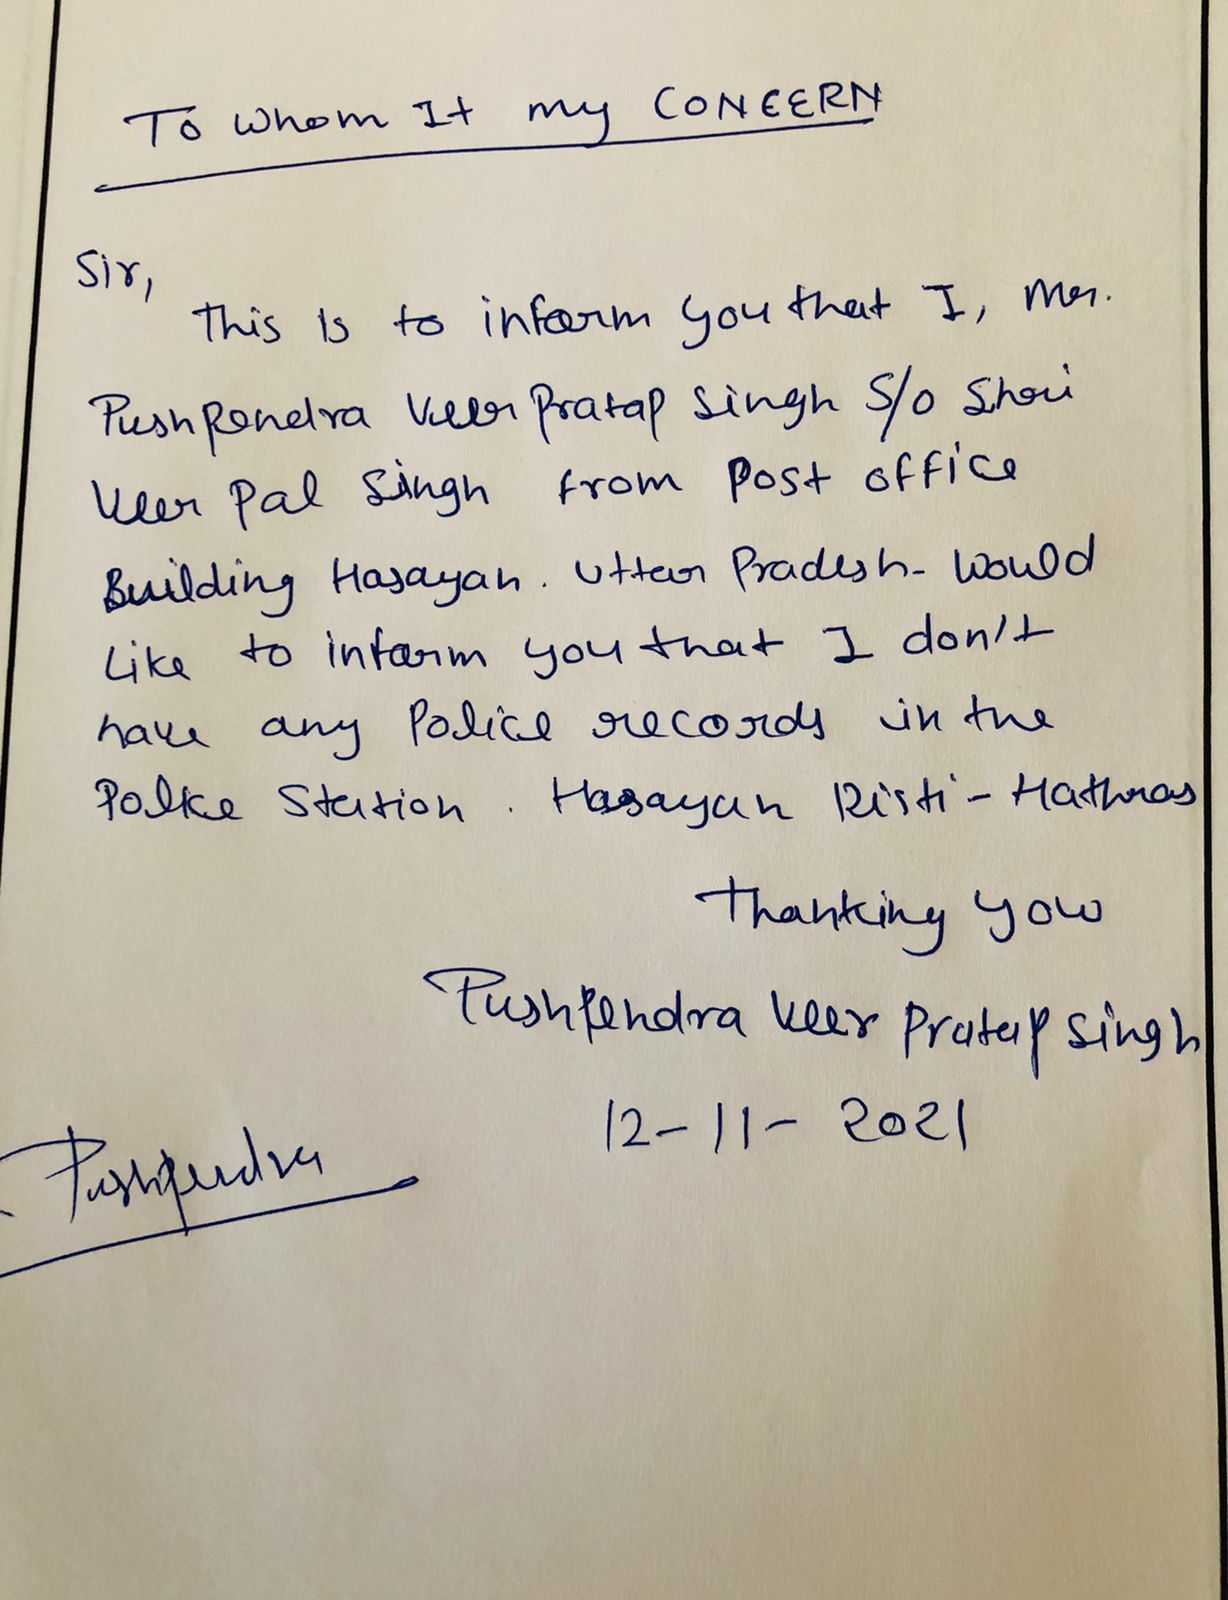 To Whom It my CONCERN
Sir,
This is to inform you that I, Mr.
Pushpendra Veer Pratap Singh S/o Shri
Veer Pal Singh from Post office
Building Hasayan. Uttar Pradesh- Would
Like to inform you that I don't
have any Police records in the
Police Station. Hasayan Disti- Hathras
Thanking you
Pushpendra Veer Pratap Singh
12-11-2021
Pushpendra